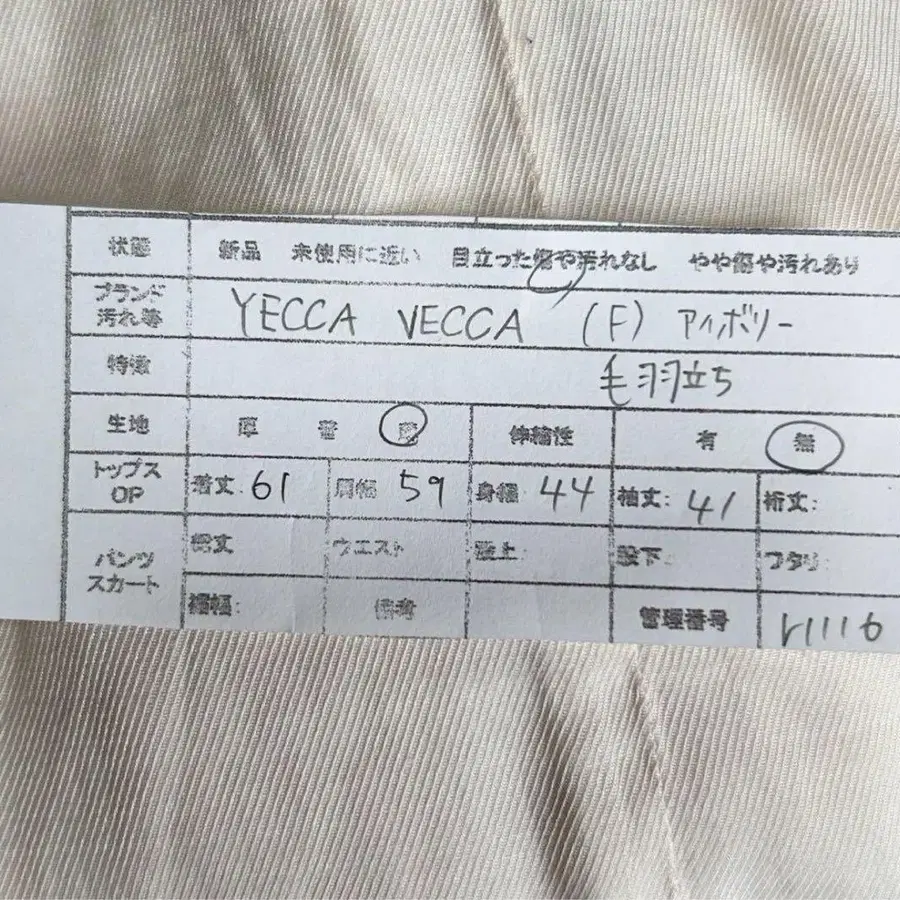 状態 新品 未使用に近い 目立った傷や汚れなし やや傷や汚れあり
ブランド
汚れ等 YECCA VECCA (F) アイボリー
特徴 毛羽立ち
生地 厚 普 薄 伸縮性 有 無
トップス
OP 着丈:61 肩幅 59 身幅 44 袖丈:41 裄丈:
パンツ
スカート 総丈 ウエスト 股上: 股下: ワタリ:
裾幅: 備考 管理番号 r1116